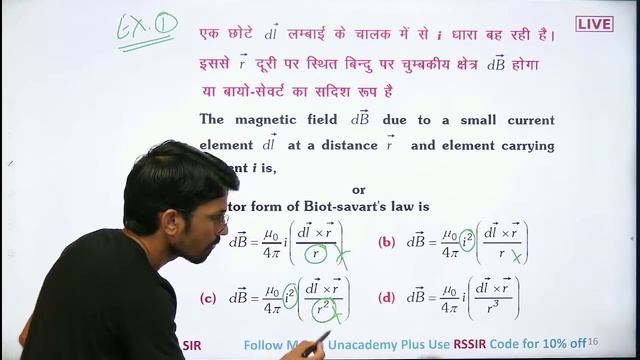 EX. ①
LIVE
एक छोटे dl⃗ लम्बाई के चालक में से i धारा बह रही है।
इससे r⃗ दूरी पर स्थित बिन्दु पर चुम्बकीय क्षेत्र dB⃗ होगा
या बायो-सेवर्ट का सदिश रूप है
The magnetic field dB⃗ due to a small current
element dl⃗ at a distance r⃗ and element carrying
i is,
or
form of Biot-savart's law is
dB⃗ = μ₀/4π i (dl⃗ × r⃗ / r) ×
(b) dB⃗ = μ₀/4π i² (dl⃗ × r⃗ / r) ×
(c) dB⃗ = μ₀/4π i² (dl⃗ × r⃗ / r²) ×
(d) dB⃗ = μ₀/4π i (dl⃗ × r⃗ / r³)
SIR Follow Unacademy Plus Use RSSIR Code for 10% off 16